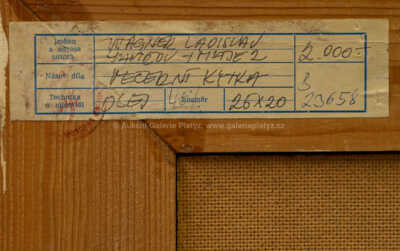 Jméno a adresa autora WAGNER LADISLAV 2.000=
Název díla VEČERNÍ KYTKA 3
Technika OLEJ Rozměr 26x20 23658
© Aukční Galerie Platýz, www.galerieplatyz.cz